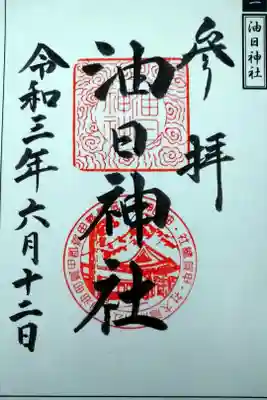 一
油日神社
参拝
油日神社
令和三年六月十二日